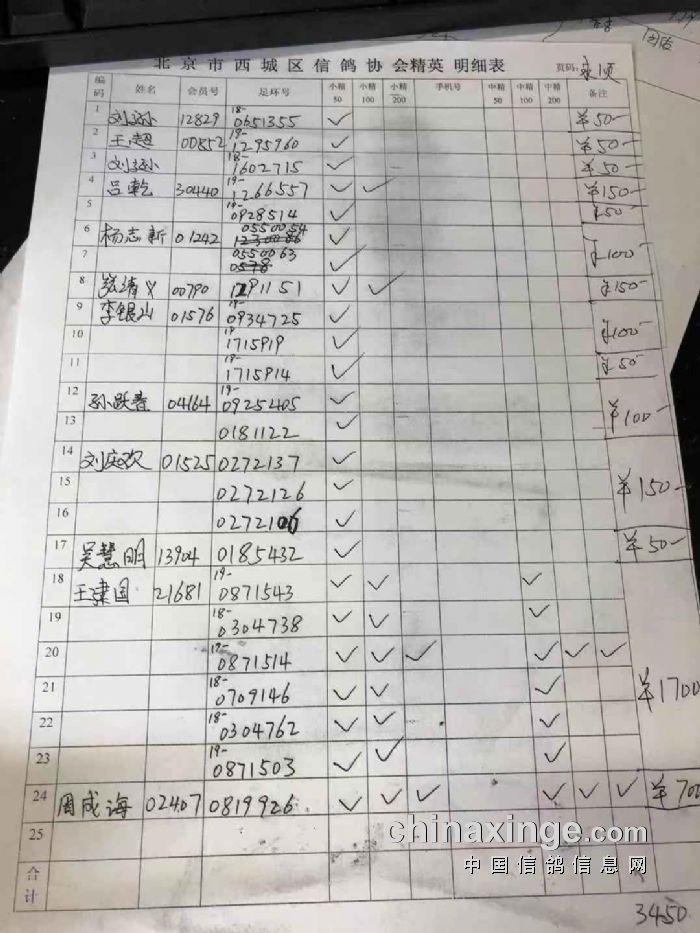 北京市西城区信鸽协会精英 明细表
页码:
编码 姓名 会员号 足环号 小精50 小精100 小精200 手机号 中精50 中精100 中精200 备注
1 12829 18-0651355 ✓ ¥50-
2 王超 00852 19-1295960 ✓ ¥50-
3 18-1602715 ✓ ¥50-
4 吕乾 30440 19-1266557 ✓ ✓ ¥150-
5 19-0928514 ✓ ¥50-
6 杨志新 01242 0550054 ✓
7 0550063 ✓ ¥100-
8 张清义 00790 1291151 ✓ ✓ ¥150-
9 李银山 01576 19-0934725 ✓
10 19-1715919 ✓ ¥100-
11 1715914 ✓ ¥50-
12 孙跃春 04164 19-0925405 ✓
13 0181122 ✓ ¥100-
14 刘庆欢 01525 0272137 ✓
15 0272126 ✓ ¥150-
16 0272106 ✓
17 吴慧明 13904 0185432 ✓ ¥50-
18 王建国 21681 19-0871543 ✓ ✓ ✓
19 18-0304738 ✓ ✓ ✓
20 19-0871514 ✓ ✓ ✓ ✓ ✓ ✓
21 18-0709146 ✓ ✓ ✓ ¥1700
22 18-0304762 ✓ ✓ ✓
23 19-0871503 ✓ ✓ ✓
24 周成海 02407 0819926 ✓ ✓ ✓ ✓ ✓ ✓ ¥700
25
合计
3450
chinaxinge.com
中国信鸽信息网